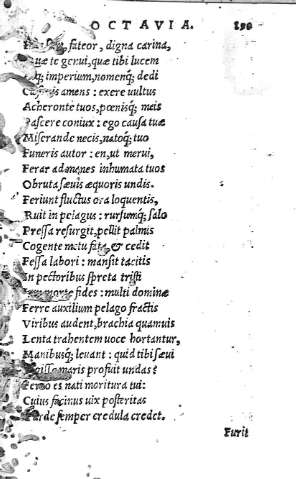 OCTAVIA. 190
fateor, digna carina,
Quæ te genui, quæ tibi lucem
imperium, nomenq; dedi
amens: exere uultus
Acheronte tuos, pœnisq; meis
Pascere coniux: ego causa tuæ
Miserande necis, natoq; tuo
Funeris autor: en, ut merui,
Ferar ad manes inhumata tuos
Obruta sæuis æquoris undis.
Feriunt fluctus ora loquentis,
Ruit in pelagus: rursumq; salo
Pressa resurgit, pellit palmis
Cogente metu freta, & cedit
Fessa labori: mansit tacitis
In pectoribus spreta tristi
fides: multi dominæ
Ferre auxilium pelago fractis
Viribus audent, brachia quamuis
Lenta trahentem uoce hortantur,
Manibusq; leuant: quid tibi sæui
maris profuit undas?
es nati moritura tui:
Cuius facinus uix posteritas
Tarde semper credula credet.
Furit